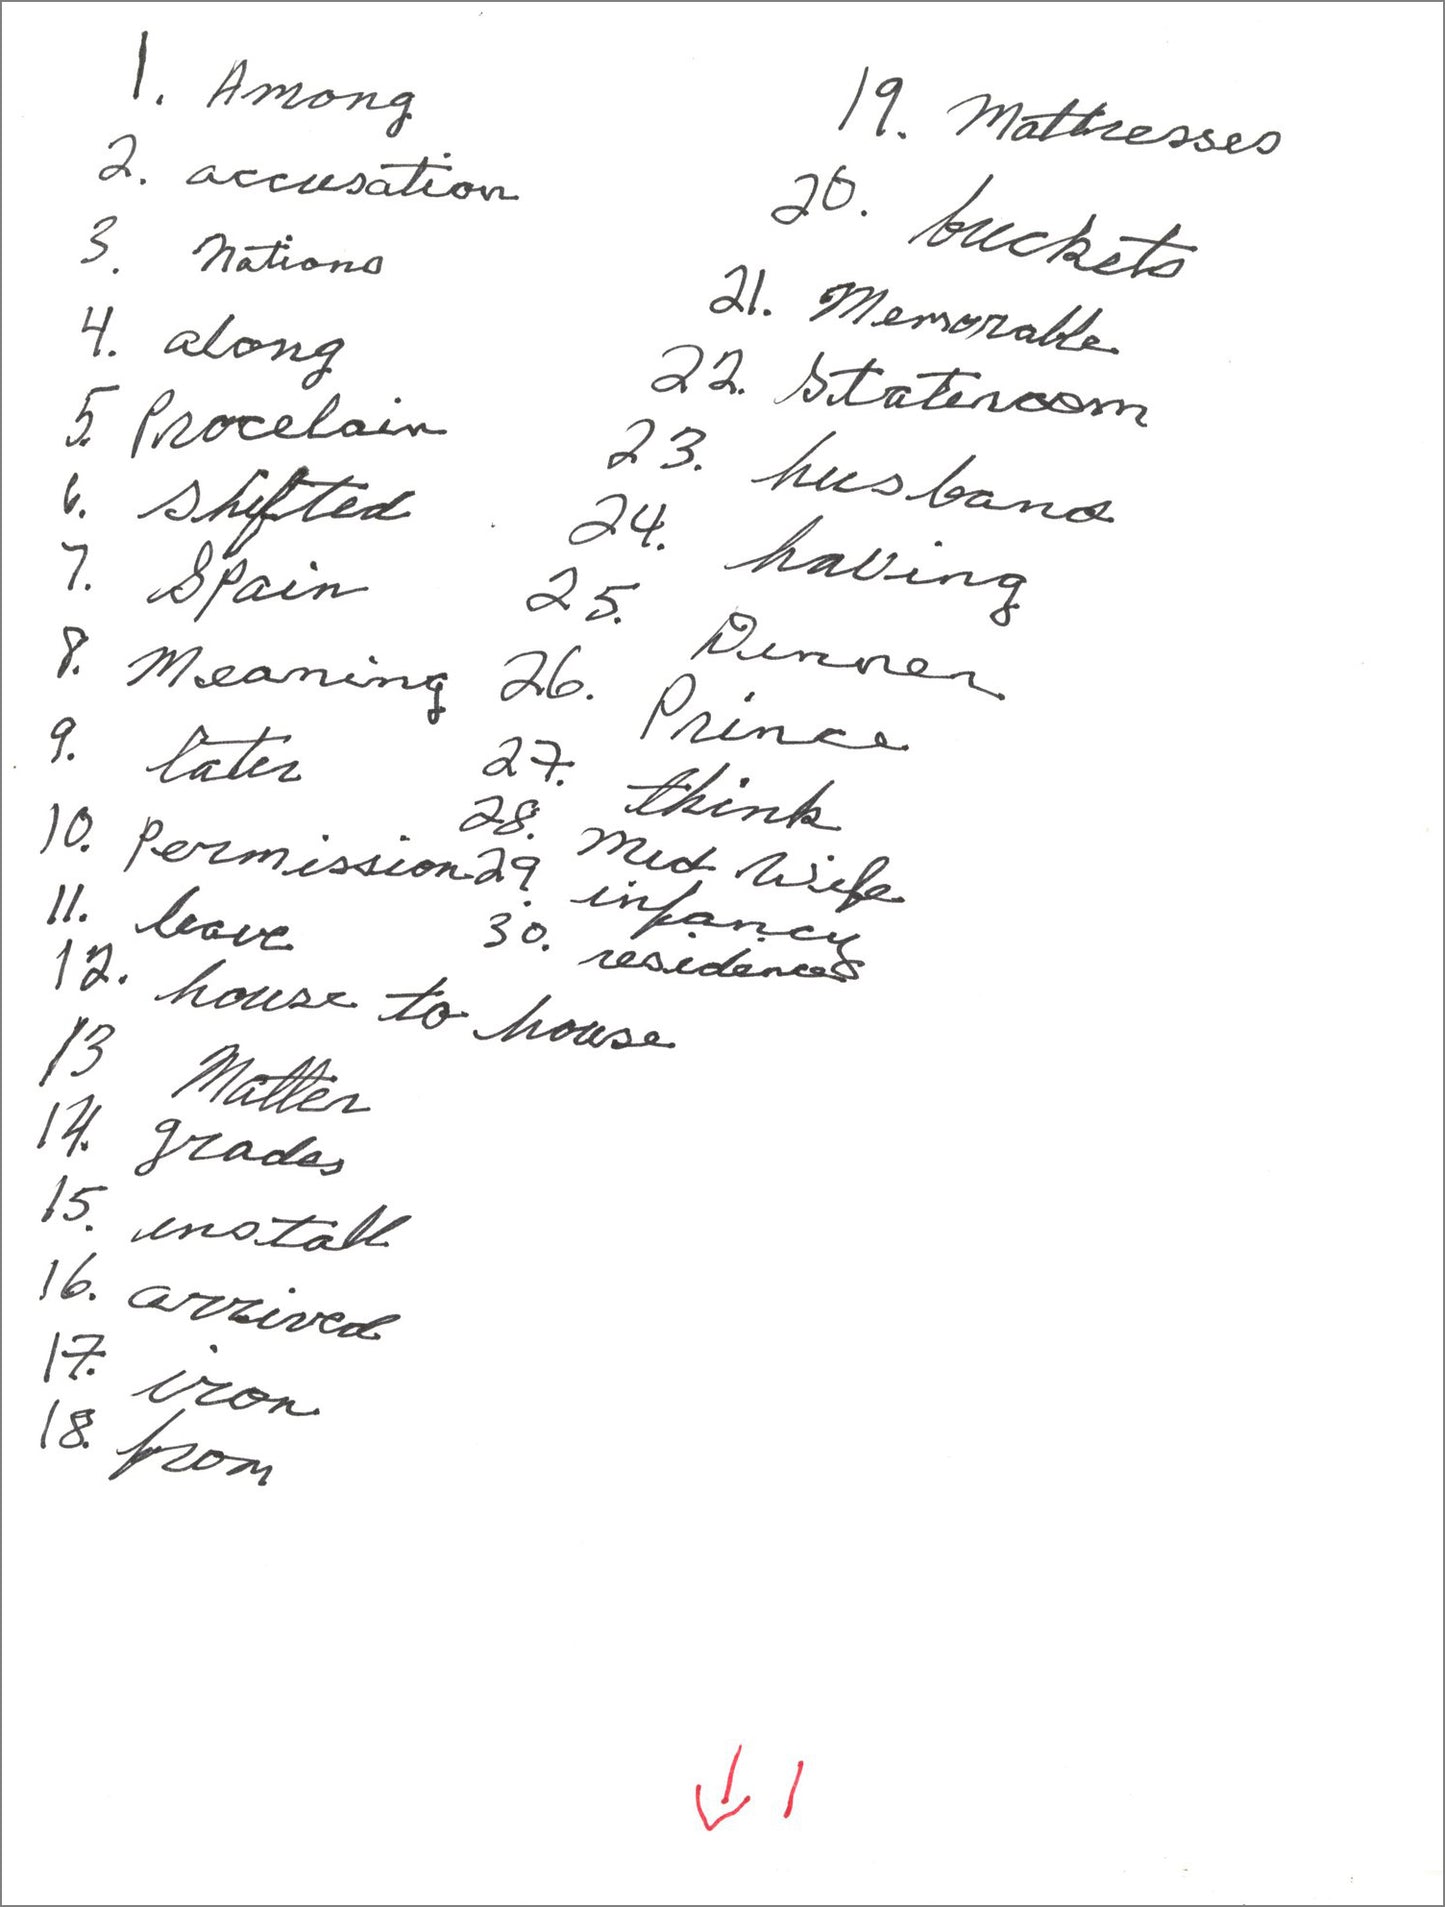 1. Among
2. accusation
3. Nations
4. along
5. Procelain
6. shifted
7. Spain
8. Meaning
9. later
10. Permission
11. leave
12. house to house
13 Matter
14. grades
15. install
16. arrived
17. iron
18. from
19. Mattresses
20. buckets
21. Memorable
22. Stateroom
23. husband
24. having
25. Dinner
26. Prince
27. think
28. Mid Wife
29. infancy
30. residences
↓ 1